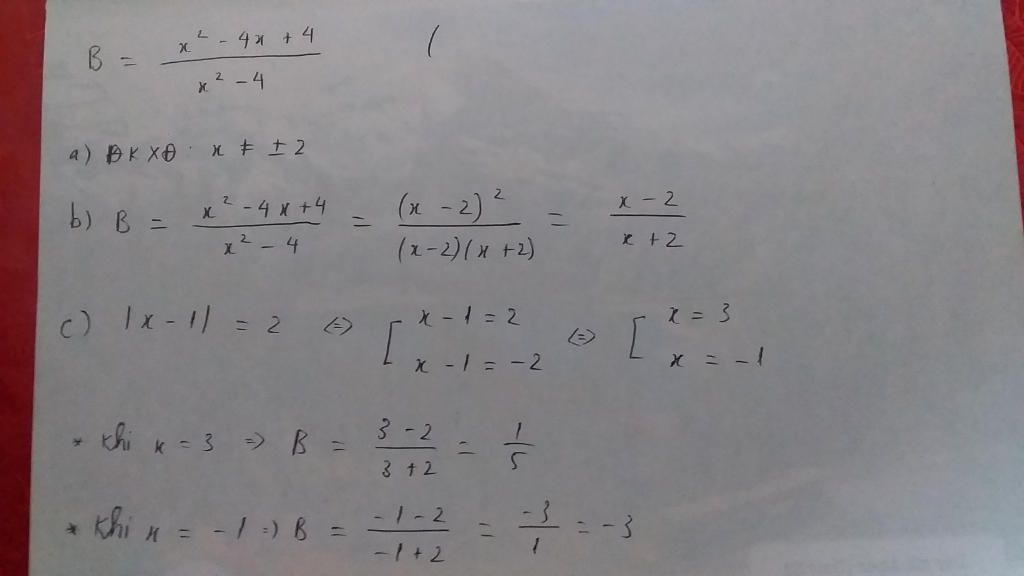 B = \frac{x^2 - 4x + 4}{x^2 - 4} (
a) ĐKXĐ: x ≠ ± 2
b) B = \frac{x^2 - 4x + 4}{x^2 - 4} = \frac{(x - 2)^2}{(x - 2)(x + 2)} = \frac{x - 2}{x + 2}
c) |x - 1| = 2 <=> [ x - 1 = 2 ; x - 1 = -2 <=> [ x = 3 ; x = -1
* Khi x = 3 => B = \frac{3 - 2}{3 + 2} = \frac{1}{5}
* Khi x = -1 => B = \frac{-1 - 2}{-1 + 2} = \frac{-3}{1} = -3